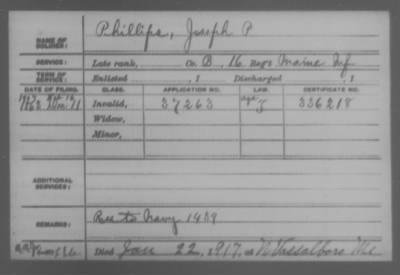 NAME OF SOLDIER: Phillips, Joseph P
SERVICE: Late rank, Co B, 16 Reg't Maine Inf
TERM OF SERVICE: Enlisted , 1 Discharged , 1
DATE OF FILING. CLASS. APPLICATION NO. LAW. CERTIFICATE NO.
1863 Invalid, 37263 336218
Widow,
Minor,
ADDITIONAL SERVICES:
REMARKS: Res. to Navy
Died Jan 22, 1917, at N Vassalboro Me.